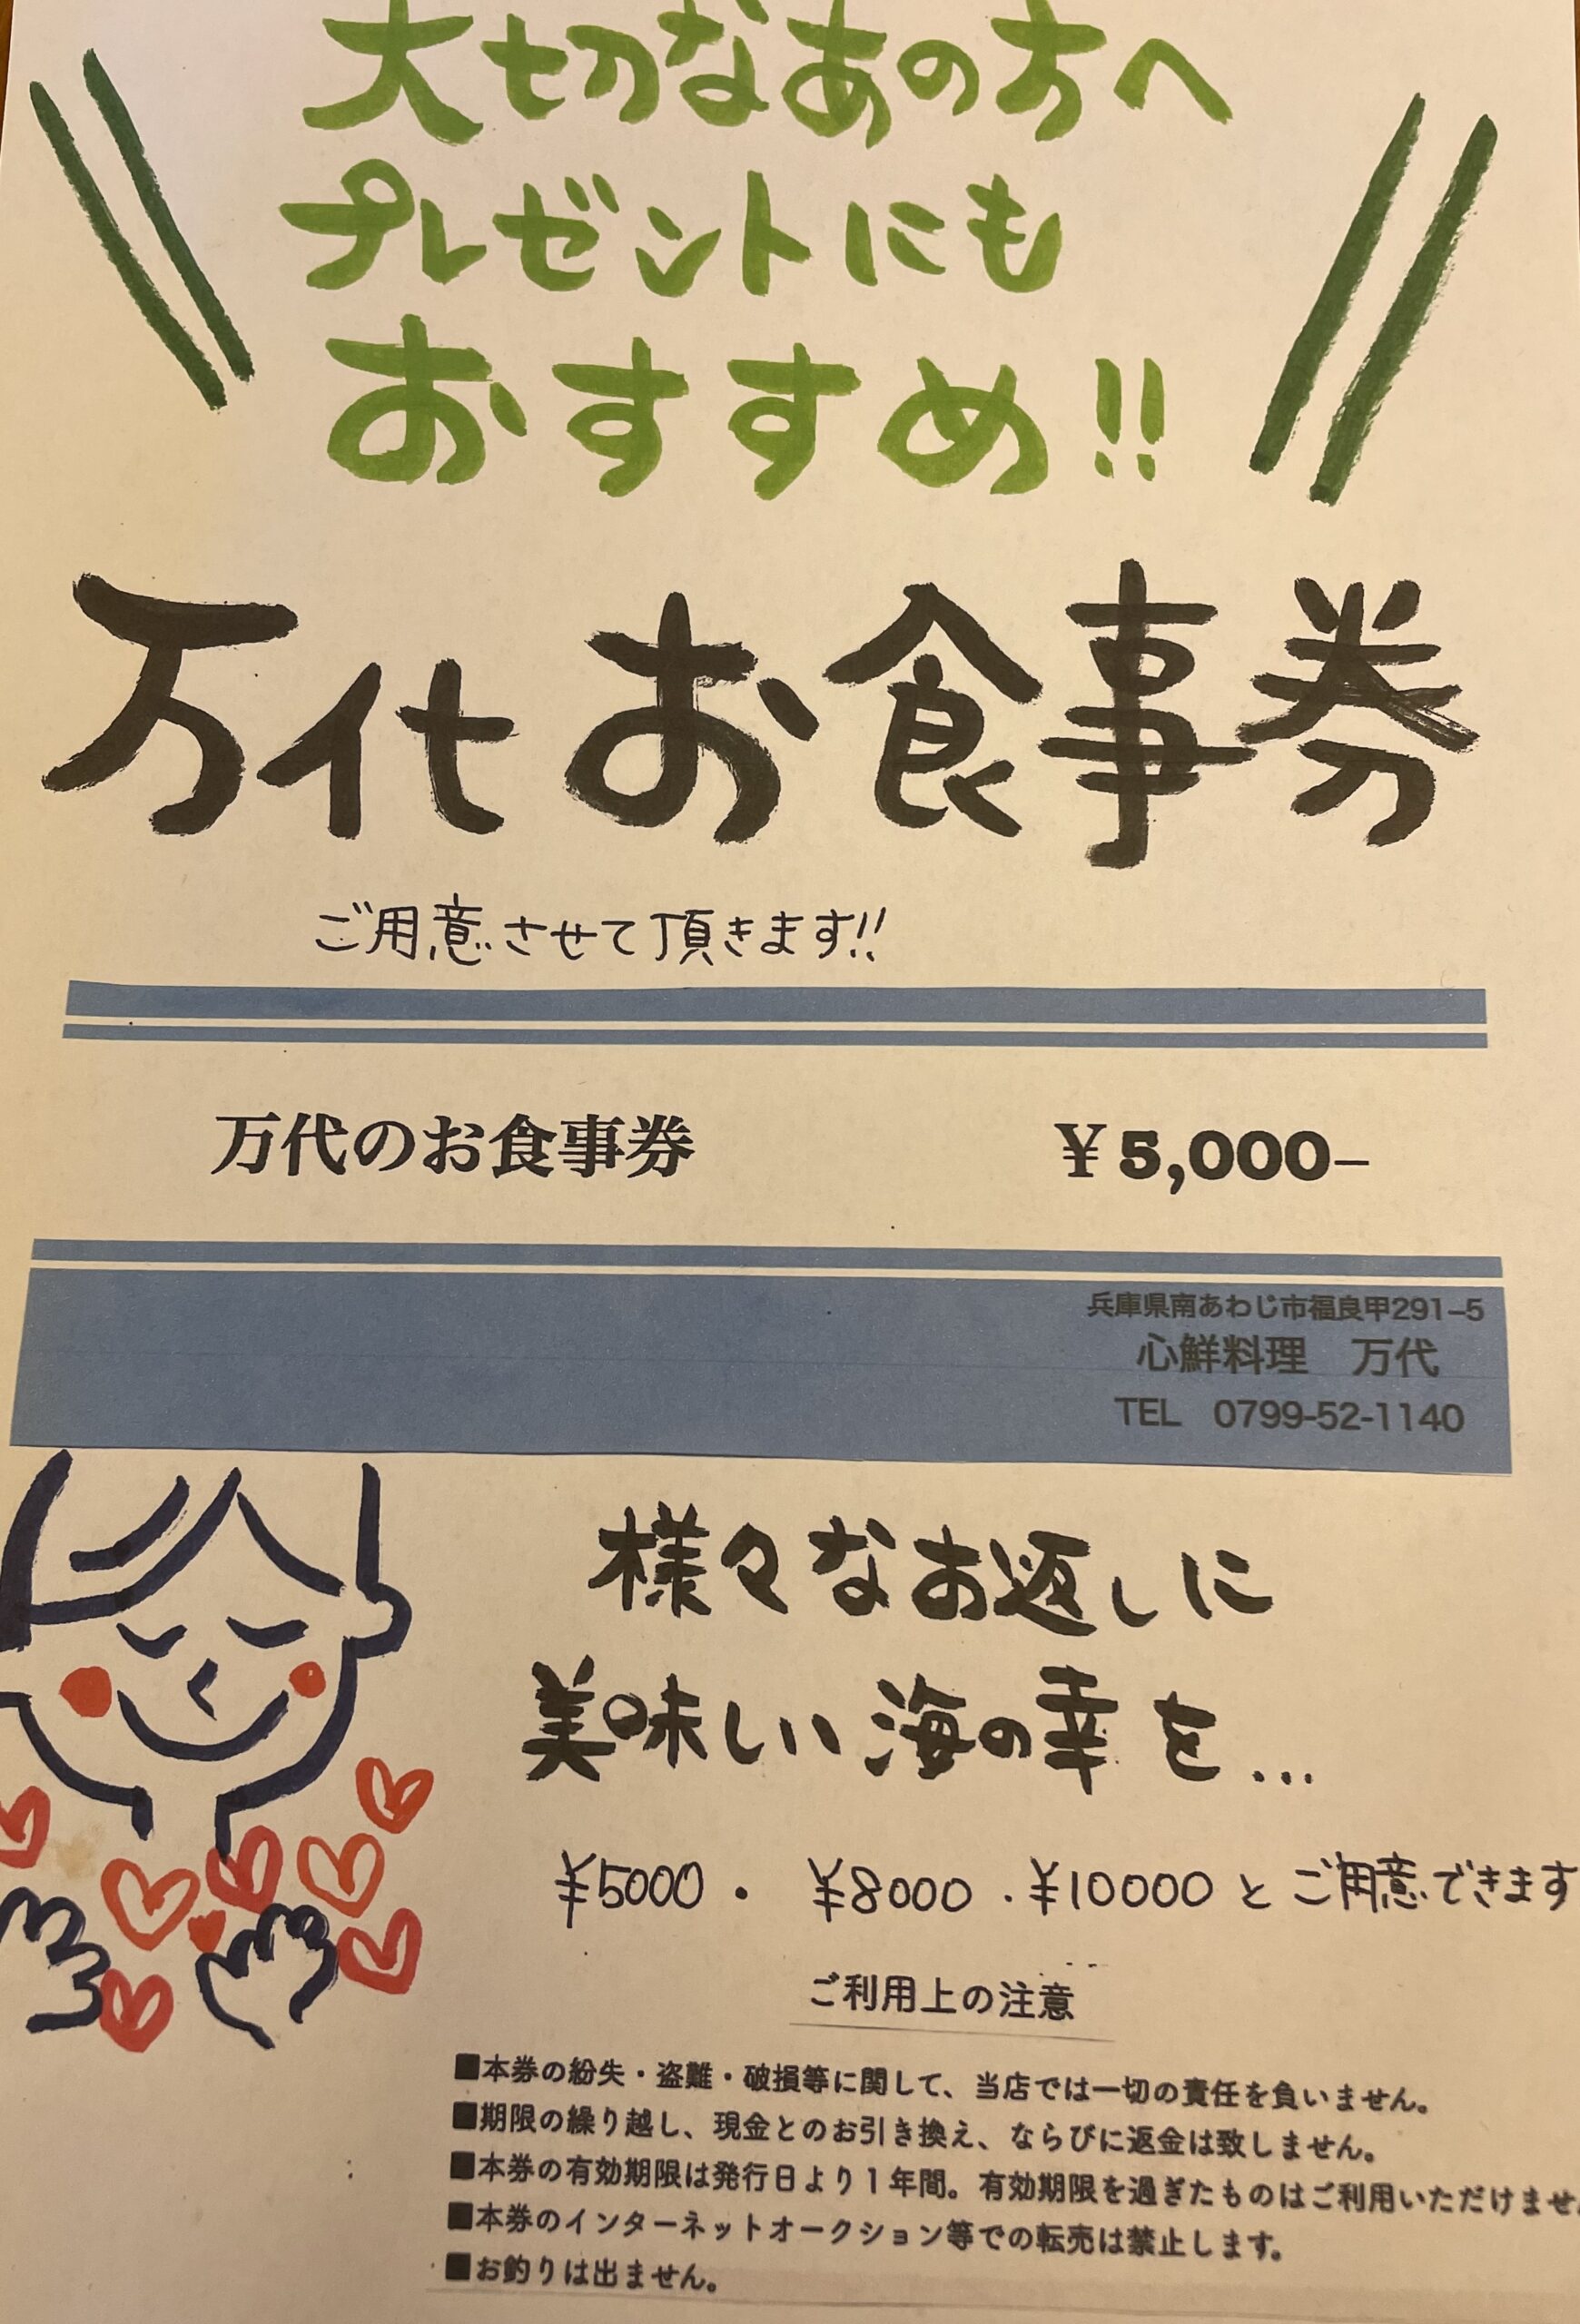 大切なあの方へ
プレゼントにも
おすすめ!!
万代お食事券
ご用意させて頂きます!!
万代のお食事券 ¥5,000−
兵庫県南あわじ市福良甲291−5
心鮮料理 万代
TEL 0799-52-1140
様々なお返しに
美味しい海の幸を...
¥5000・ ¥8000・¥10000とご用意できます
ご利用上の注意
■本券の紛失・盗難・破損等に関して、当店では一切の責任を負いません。
■期限の繰り越し、現金とのお引き換え、ならびに返金は致しません。
■本券の有効期限は発行日より1年間。有効期限を過ぎたものはご利用いただけませ
■本券のインターネットオークション等での転売は禁止します。
■お釣りは出ません。